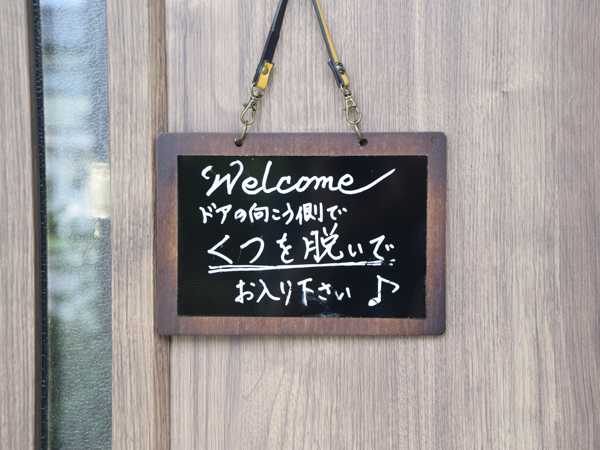 Welcome
ドアの向こう側で
くつを脱いで
お入り下さい♪